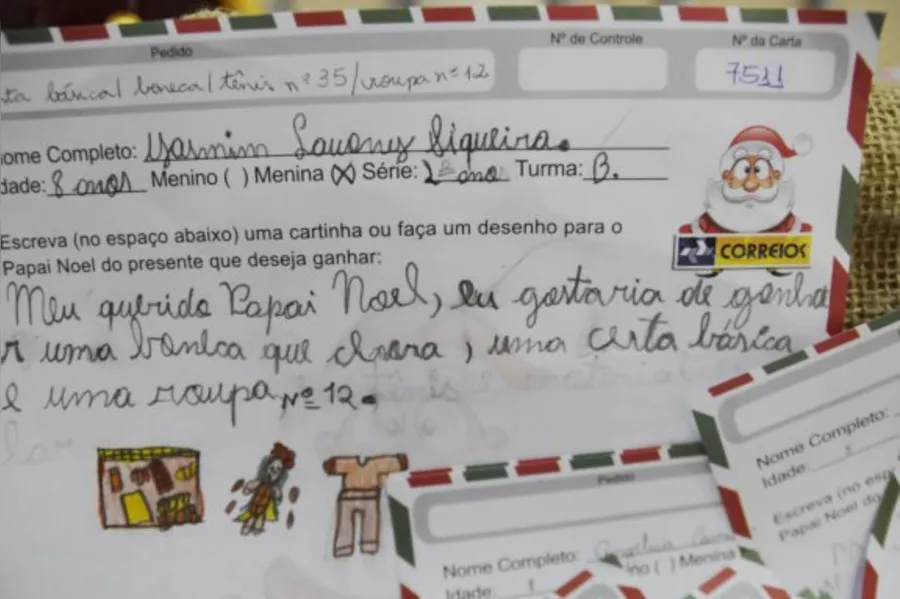 Pedido
Nº de Controle
Nº da Carta
ta básica/ boneca/ tênis nº 35/ roupa nº 12
7511
ome Completo: Yasmim Louany Siqueira.
dade: 8 anos Menino ( ) Menina (X) Série: 2º ano Turma: B.
Escreva (no espaço abaixo) uma cartinha ou faça um desenho para o
Papai Noel do presente que deseja ganhar:
CORREIOS
Meu querido Papai Noel, eu gostaria de ganha
r uma boneca que chora, uma cesta básica
e uma roupa, Nº 12.
Pedido
Nome Completo:
ino ( ) Menina
Idade:
Nome Completo:
Idade:
Escreva (no esp
Papai Noel do